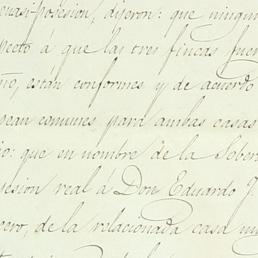 cuasi-posesion, dijeron: que ningun
pecto á que las tres fincas fuer
ño, están conformes y de acuerdo
sean comunes para ambas casas
io: que en nombre de la Sober
sesion real á Don Eduardo
cero, de la relacionada casa nu